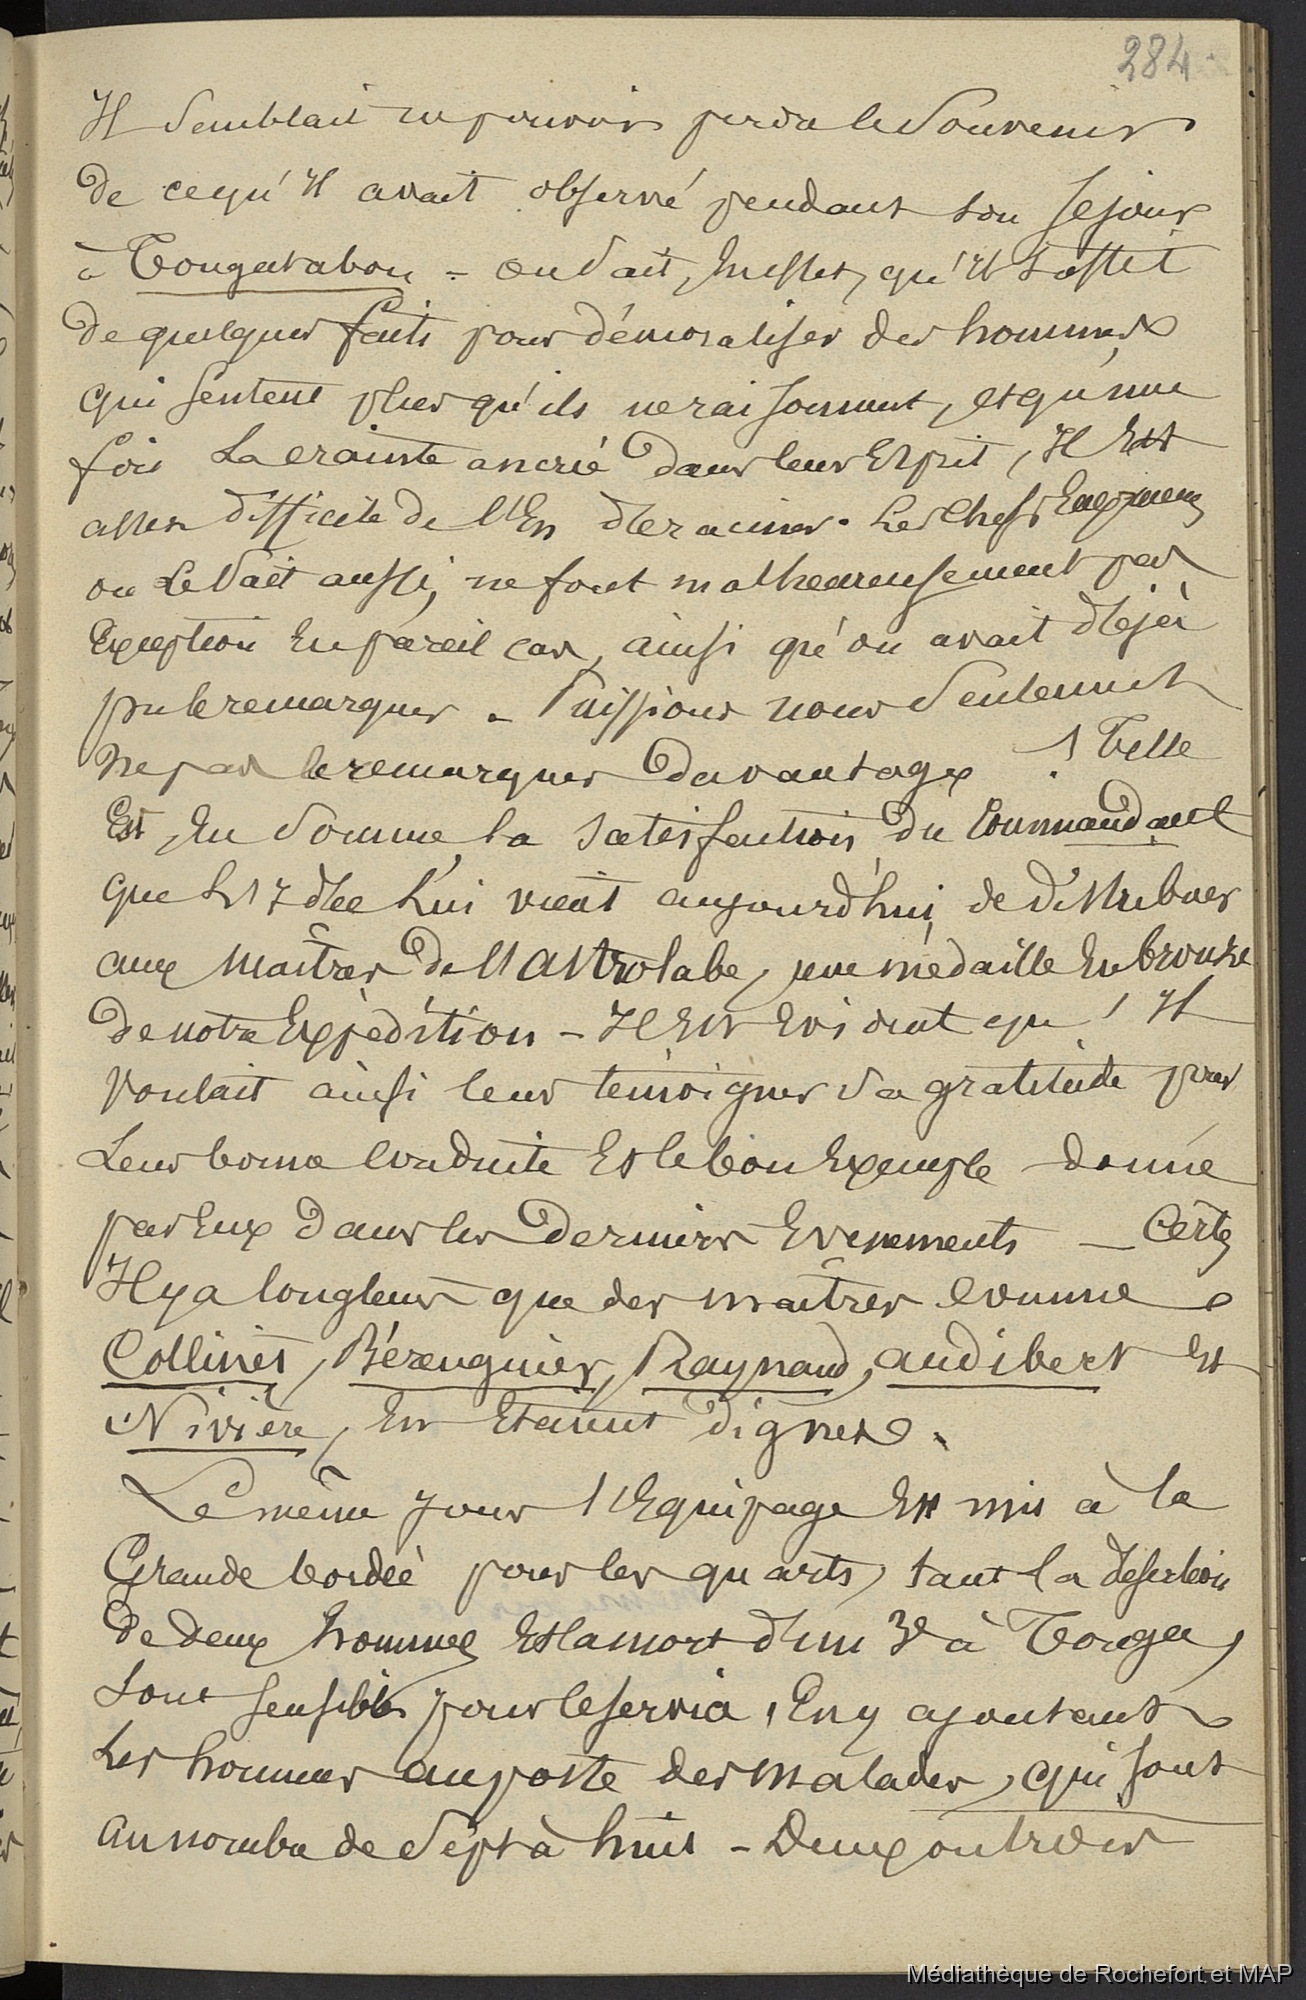 284.
Il semblait ne pouvoir perdre le Souvenir
De ce qu'Il avait observé pendant son sejour
à Tongatabou - on sait, En effet, qu'Il suffit
de quelques faits pour démoraliser des hommes
qui sentent plus qu'ils ne raisonnent, et qu'une
fois La crainte ancrée Dans leur Esprit, Il Est
assez difficile de l'En déraciner. Les Chefs Eux-mêmes
on Le Sait aussi, ne font malheureusement pas
Exception En pareil cas, ainsi qu'on avait déjà
pu le remarquer - Puissions nous Seulement
Ne pas le remarquer Davantage ! Telle
Est, En Somme, la satisfaction du Commandant
que l'Idée Lui vient aujourd'hui, de distribuer
aux Maîtres De l'Astrolabe, une médaille En bronze
De notre Expédition - Il Est Evident qu'Il
Voulait ainsi leur témoigner Sa gratitude pour
Leur bonne Conduite Et le bon Exemple donné
par Eux Dans les Derniers Evenements - Certes
Il y a longtems que des maîtres comme
Collinet, Bérenguier, Raynaud, audibert Et
Nivière, En Etaient Dignes.
Le même Jour l'Equipage Est mis à la
Grande bordée pour les quarts, tant la desertion
De deux hommes Et la mort d'un 3e à Tonga,
Sont sensibles pour le service, En y ajoutant
Les hommes au poste des Malades, qui sont
au nombre de Sept à huit - Deux ou trois
Médiathèque de Rochefort et MAP